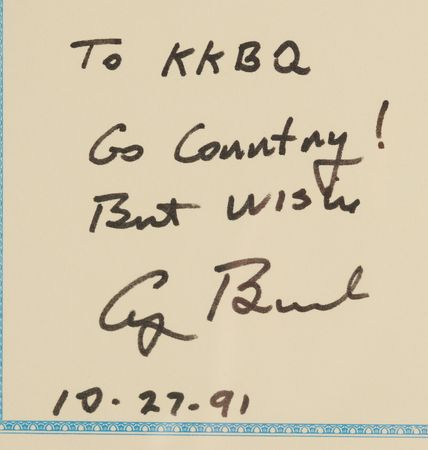 To KKBQ
Go Country!
Best Wishes
George Bush
10-27-91